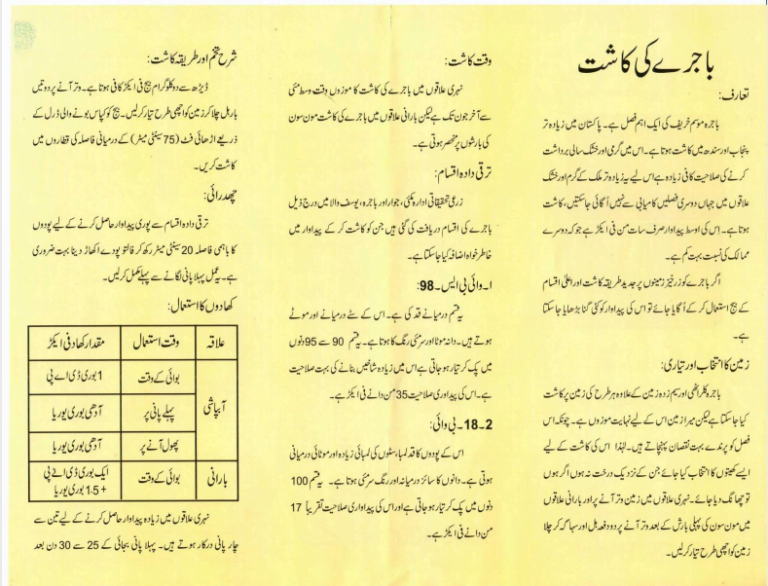 باجرے کی کاشت
تعارف:
باجرہ موسم خریف کی ایک اہم فصل ہے۔ پاکستان میں زیادہ تر
پنجاب اور سندھ میں کاشت ہوتا ہے۔ اس میں گرمی اور خشک سالی برداشت
کرنے کی صلاحیت کافی زیادہ ہے اس لیے یہ زیادہ تر ملک کے گرم اور خشک
علاقوں میں جہاں دوسری فصلیں کامیابی سے نہیں اُگائی جاسکتیں، کاشت
ہوتا ہے۔ اس کی اوسط پیداوار صرف سات من فی ایکڑ ہے جو کہ دوسرے
ممالک کی نسبت بہت کم ہے۔
اگر باجرے کو زرخیز زمینوں پر جدید طریقہ کاشت اور اعلیٰ اقسام
کے بیج استعمال کر کے اُگایا جائے تو اس کی پیداوار کو کئی گنا بڑھایا جاسکتا
ہے۔
زمین کا انتخاب اور تیاری:
باجرہ کلراٹھی اور سیم زدہ زمین کے علاوہ ہر طرح کی زمین پر کاشت
کیا جاسکتا ہے لیکن میرا زمین اس کے لیے نہایت موزوں ہے۔ چونکہ اس
فصل کو پرندے بہت نقصان پہنچاتے ہیں۔ لہٰذا اس کی کاشت کے لیے
ایسے کھیتوں کا انتخاب کیا جائے جن کے نزدیک درخت نہ ہوں اگر ہوں
تو چھانگ دیا جائے۔ نہری علاقوں میں زمین وتر آنے پر اور بارانی علاقوں
میں مون سون کی پہلی بارش کے بعد وتر آنے پر دو دفعہ ہل اور سہاگہ کر چلا
زمین کو اچھی طرح تیار کر لیں۔
وقت کاشت:
نہری علاقوں میں باجرے کی کاشت کا موزوں وقت وسط مئی
سے آخر جون تک ہے لیکن بارانی علاقوں میں باجرے کی کاشت مون سون
کی بارشوں پر منحصر ہوتی ہے۔
ترقی دادہ اقسام:
زرعی تحقیقاتی ادارہ مکئی، جوار اور باجرہ، یوسف والا میں درج ذیل
باجرے کی اقسام دریافت کی گئی ہیں جن کو کاشت کر کے پیداوار میں
خاطر خواہ اضافہ کیا جاسکتا ہے۔
۱۔ وائی بی ایس۔98:
یہ قسم درمیانے قد کی ہے۔ اس کے سٹے درمیانے اور موٹے
ہوتے ہیں۔ دانہ موٹا اور سرمئی رنگ کا ہوتا ہے۔ یہ قسم 90 سے 95 دنوں
میں پک کر تیار ہو جاتی ہے اس میں زیادہ شاخیں بنانے کی بہت صلاحیت
ہے۔ اس کی پیداواری صلاحیت 35 من دانے فی ایکڑ ہے۔
2۔18۔ بی وائی:
اس کے پودوں کا قد لمبا، سٹوں کی لمبائی زیادہ اور موٹائی درمیانی
ہوتی ہے۔ دانوں کا سائز درمیانہ اور رنگ سرمئی ہوتا ہے۔ یہ قسم 100
دنوں میں پک کر تیار ہو جاتی ہے اور اس کی پیداواری صلاحیت تقریباً 17
من دانے فی ایکڑ ہے۔
شرح تخم اور طریقہ کاشت:
ڈیڑھ سے دو کلوگرام بیج فی ایکڑ کافی ہوتا ہے۔ وتر آنے پر دو تین
بار ہل چلا کر زمین کو اچھی طرح تیار کر لیں۔ بیج کو کپاس بونے والی ڈرل کے
ذریعے اڑھائی فٹ (75 سینٹی میٹر) کے درمیانی فاصلہ کی قطاروں میں
کاشت کریں۔
چھدرائی:
ترقی دادہ اقسام سے پوری پیداوار حاصل کرنے کے لیے پودوں
کا باہمی فاصلہ 20 سینٹی میٹر رکھ کر فالتو پودے اکھاڑ دینا بہت ضروری
ہے۔ یہ عمل پہلا پانی لگانے سے پہلے مکمل کر لیں۔
کھادوں کا استعمال:
علاقہ وقت استعمال مقدار کھاد فی ایکڑ
آبپاشی بوائی کے وقت 1 بوری ڈی اے پی
پہلے پانی پر آدھی بوری یوریا
پھول آنے پر آدھی بوری یوریا
بارانی بوائی کے وقت ایک بوری ڈی اے پی
+ 1.5 بوری یوریا
نہری علاقوں میں زیادہ پیداوار حاصل کرنے کے لیے تین سے
چار پانی درکار ہوتے ہیں۔ پہلا پانی بجائی کے 25 سے 30 دن بعد